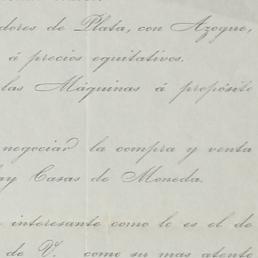 dores de Plata, con Azogue,
á precios equitativos.
las Máquinas á propósito
negociar la compra y venta
ay Casas de Moneda.
interesante como lo es el de
de V. como su mas atento